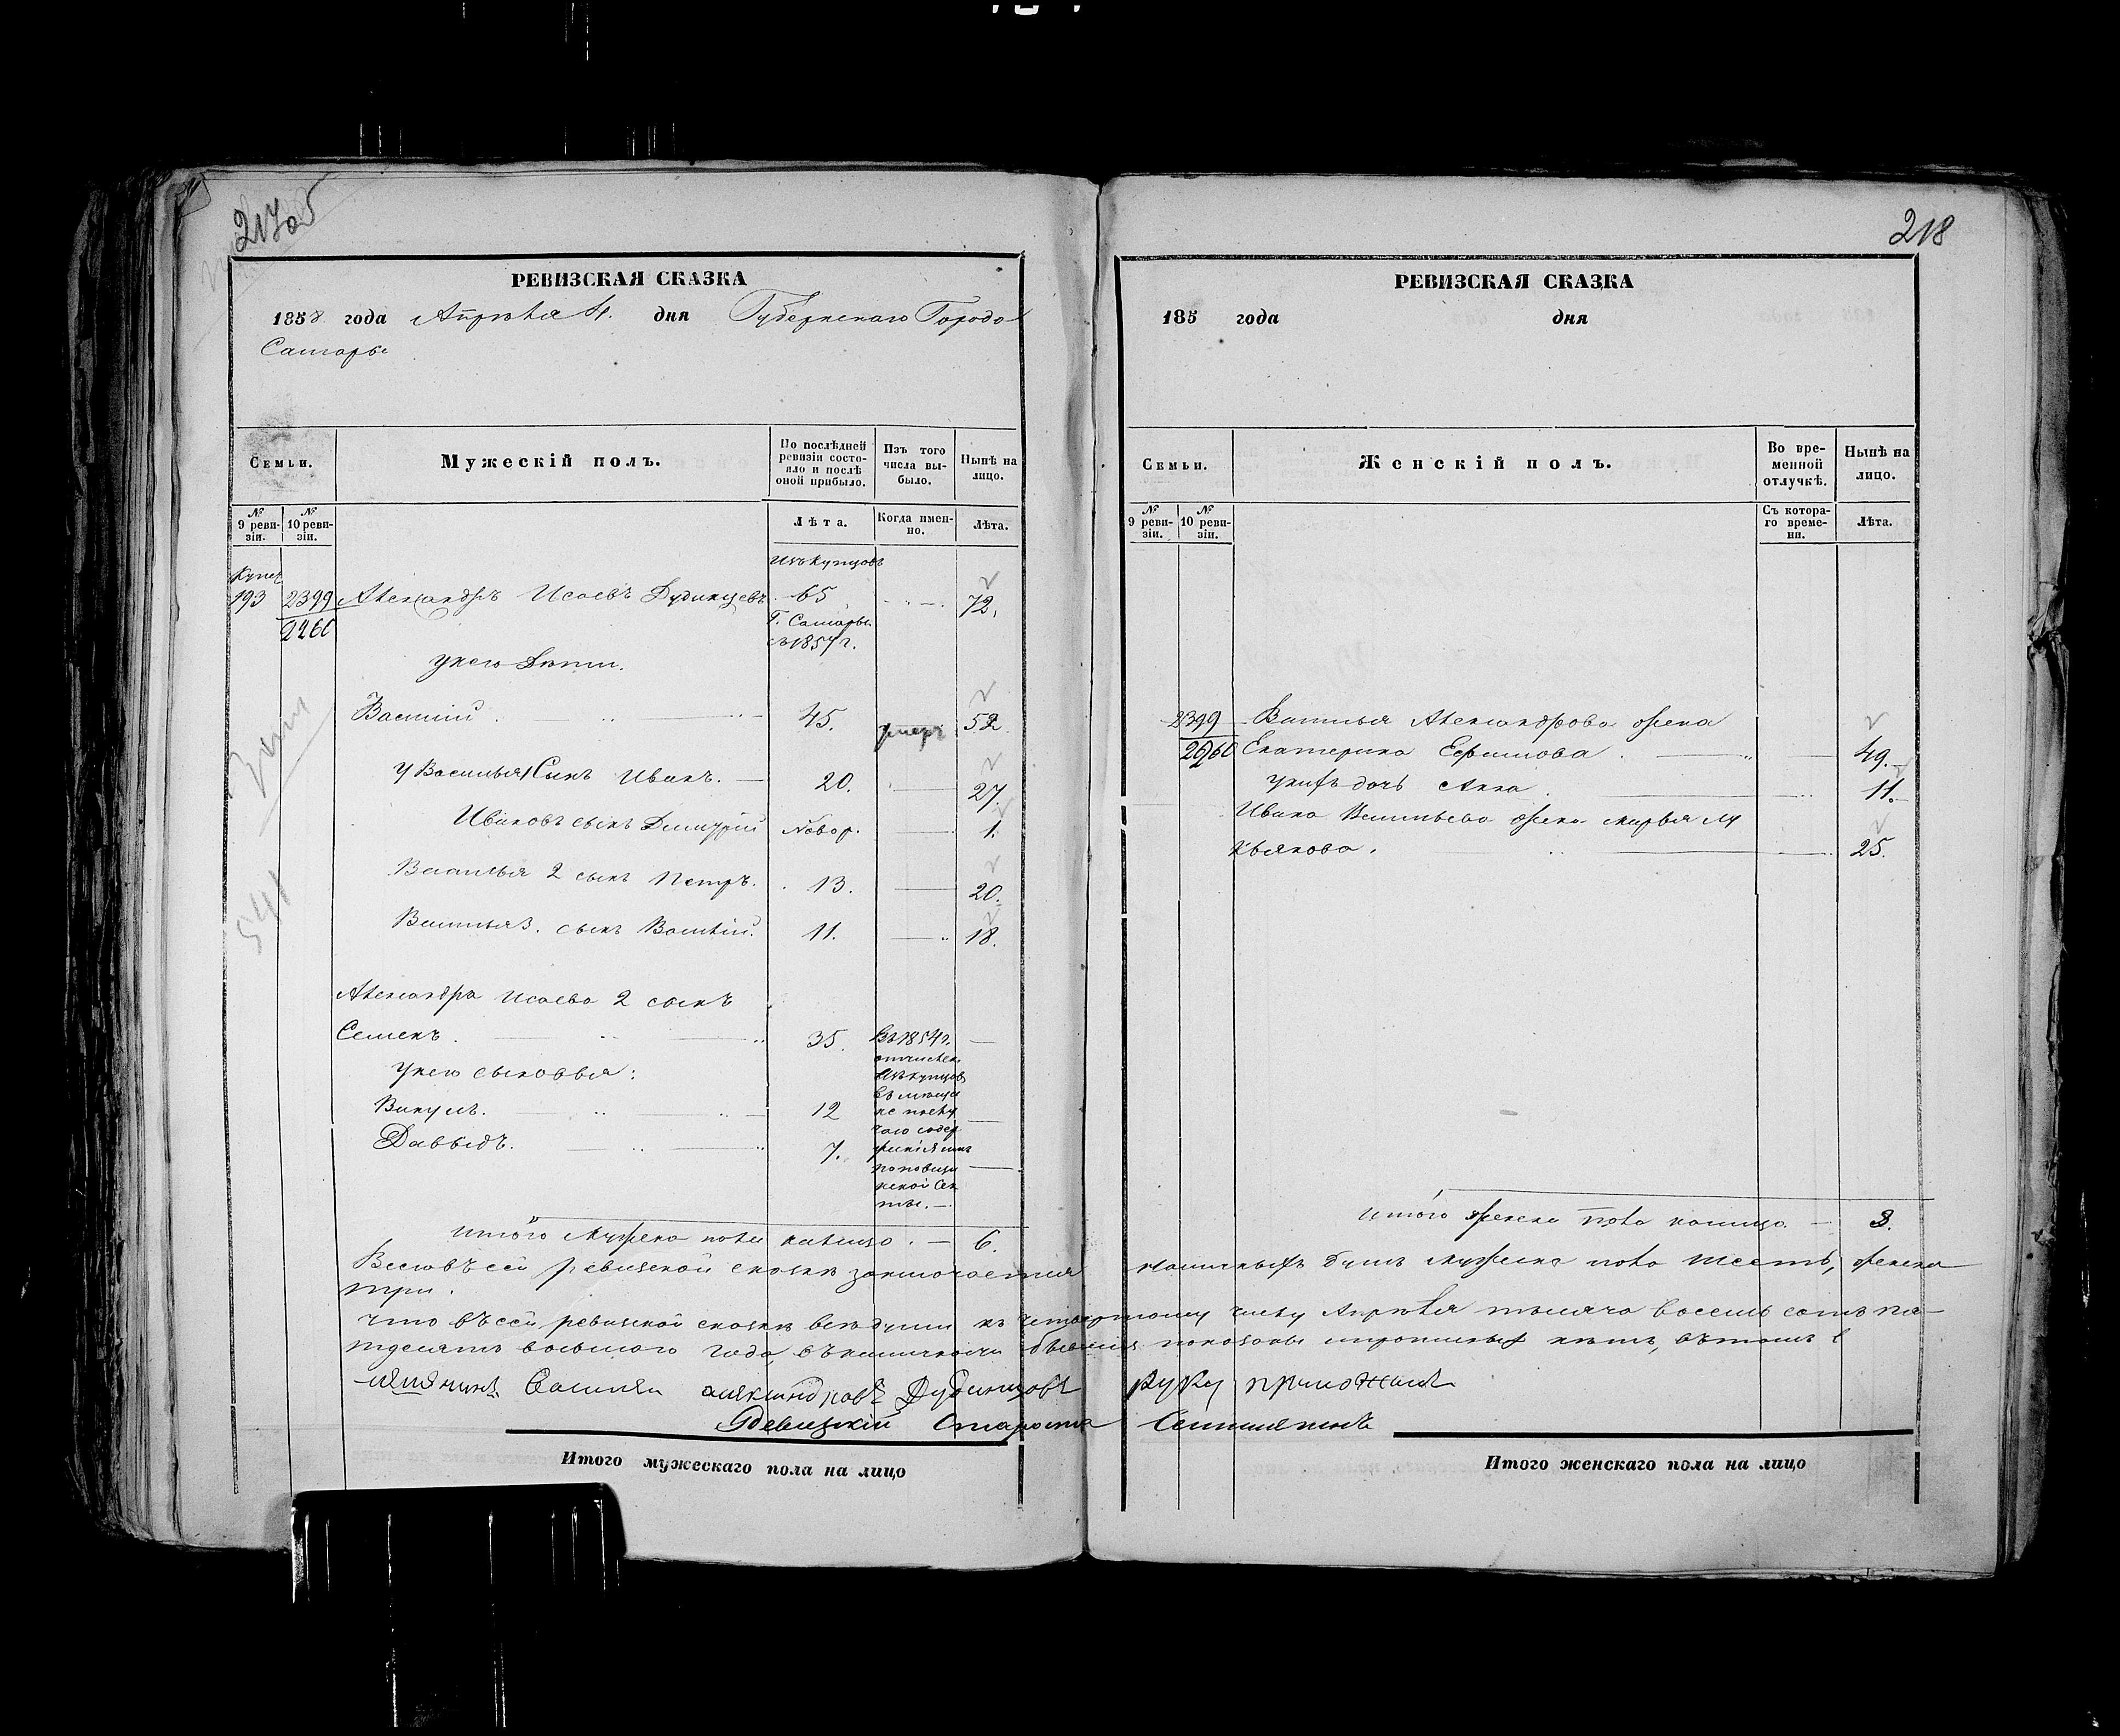 217об
РЕВИЗСКАЯ СКАЗКА
1858 года Апрѣля 4. дня Губернскаго Города
Самары
Семьи.
Мужескій полъ.
По послѣдней ревизіи состояло и послѣ оной прибыло.
Изъ того числа выбыло.
Нынѣ на лицо.
№ 9 ревизіи.
№ 10 ревизіи.
Лѣта.
Когда именно.
Лѣта.
Изъ купцовъ
Купеч
193 2399 Александръ Исаевъ Дудинцевъ 65 72.
2460 Г. Самары
съ 1857 г.
у него дѣти.
Василій 45. умеръ 52.
у Василья 1 Сынъ Иванъ. 20. 27.
Ивановъ сынъ Димитрій Новор. 1.
Василья 2 сынъ Петръ. 13. 20.
Василья 3. сынъ Василій. 11. 18.
Александра Исаева 2 сынъ
Семенъ. 35. Въ 1854 г.
отчислен.
изъ купцов
у него сыновья:
въ мѣща
Викулъ. 12
не по слу
чаю содер
Давыдъ. 7. жанія имъ
поповщи
нской Сек
ты.
Итого Мужеска пола налицо. 6.
218
РЕВИЗСКАЯ СКАЗКА
185 года дня
Семьи.
Женскій полъ.
Во временной отлучкѣ.
Нынѣ на лицо.
№ 9 ревизіи.
№ 10 ревизіи.
Съ котораго времени.
Лѣта.
2399 Василья Александрова жена
2960 Екатерина Ефимова. 49.
у нихъ дочь Анна. 11.
Ивана Васильева жена Марья Лу
кьянова. 25.
Итого женска пола налицо. 3.
Всего въ сей ревизской сказкѣ заключается наличныхъ душъ мужеска пола шесть, женска
три.
Что въ сей ревизской сказкѣ всѣ души къ четвертому числу Апрѣля тысяча восемь сотъ пя-
тдесятъ восьмого года, въ наличности бывшія показаны и прописныхъ нѣтъ, въ томъ
мѣщанинъ Василья аляксандровъ Дудинцовъ руку приложилъ
Ревизскій Староста
Итого мужескаго пола на лицо
Итого женскаго пола на лицо